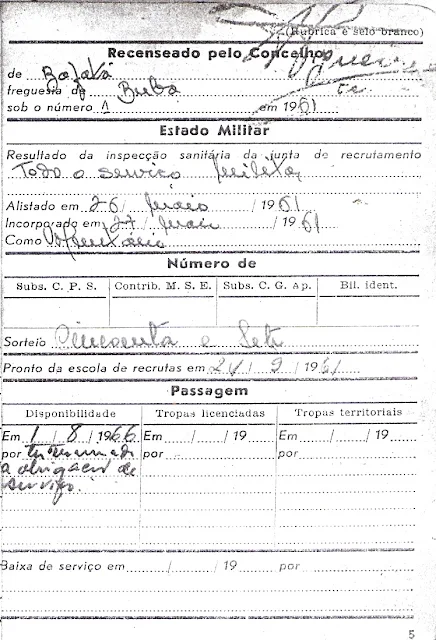 (Rubrica e selo branco)
Recenseado pelo Concelho
de Bafatá
freguesia de Buba
sob o número 1 em 1961
Estado Militar
Resultado da inspecção sanitária da junta de recrutamento
Todo o serviço militar
Alistado em 26/ Maio /1961
Incorporado em 27/ Maio /1961
Como
Número de
Subs. C. P. S. Contrib. M. S. E. Subs. C. G. Ap. Bil. ident.
Sorteio Cincoenta e Sete
Pronto da escola de recrutas em 24/ 9 /1961
Passagem
Disponibilidade Tropas licenciadas Tropas territoriais
Em 1/ 8 /1966 Em / /19 Em / /19
por ter terminado por por
a obrigação de
serviço.
Baixa de serviço em / /19 por
5